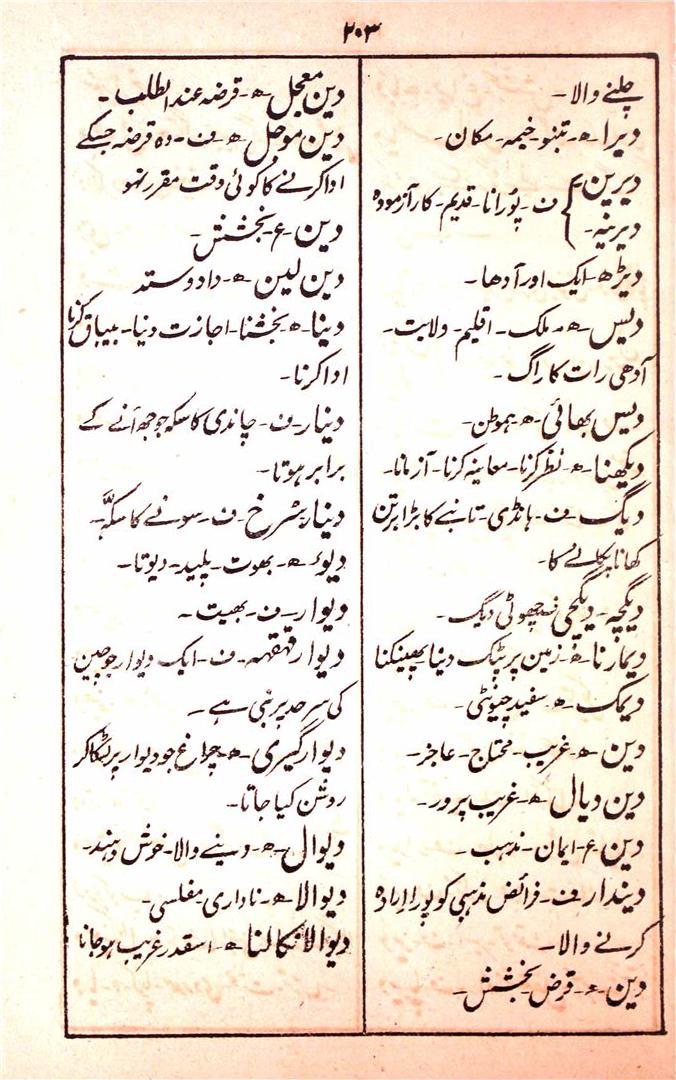 ۲۰۳
چلنے والا۔
دیرا۔ ھ۔ تنبو۔ خیمہ۔ مکان۔
دیرین
دیرینہ۔ } ف۔ پُورانا۔ قدیم۔ کارآزمودہ
دیڑھ۔ ھ۔ ایک اور آدھا۔
دیس۔ ھ۔ ملک۔ اقلیم۔ ولایت۔
آدھی رات کا راگ۔
دیس بھائی۔ ھ۔ ہموطن۔
دیکھنا۔ ھ۔ نظر کرنا۔ معاینہ کرنا۔ آزمانا۔
دیگ۔ ف۔ ہانڈی۔ تانبے کا بڑا برتن
کھانا پکانے کا۔
دیگچہ۔ دیگچی۔ ف۔ چھوٹی دیگ۔
دیمارنا۔ ھ۔ زمین پر پٹک دینا پھینکنا
دیمک۔ ھ۔ سفید چیونٹی۔
دین۔ ھ۔ غریب۔ محتاج۔ عاجز۔
دین دیال۔ ھ۔ غریب پرور۔
دین۔ ع۔ ایمان۔ مذہب۔
دیندار۔ ف۔ فرائض مذہبی کو پورا ارادہ
کرنے والا۔
دین۔ ع۔ قرض۔ بخشش۔
دین معجل۔ ھ۔ قرضہ عند الطلب۔
دین موجل۔ ھ۔ ف۔ وہ قرضہ جسکے
ادا کرنے کا کوئی وقت مقرر نہو
دین۔ ع۔ بخشش۔
دین لین۔ ھ۔ داد و ستد
دینا۔ ھ۔ بخشنا۔ اجازت دنیا۔ بیباق کرنا
ادا کرنا۔
دینار۔ ف۔ چاندی کا سکہ جو چھ آنے کے
برابر ہوتا۔
دینار سُرخ۔ ف۔ سونے کا سکّہ۔
دیو۔ ھ۔ بھوت۔ پلید۔ دیوتا۔
دیوار۔ ف۔ بھیت۔
دیوار قہقہہ۔ ف۔ ایک دیوار جو چین
کی سرحد پر بنی ہے۔
دیوار گیری۔ ھ۔ چراغ جو دیوار پر لٹکا کر
روشن کیا جاتا۔
دیوال۔ ھ۔ دینے والا۔ خوش دہند۔
دیوالا۔ ھ۔ ناداری مفلسی۔
دیوالا نکالنا۔ ھ۔ اسقدر غریب ہوجانا